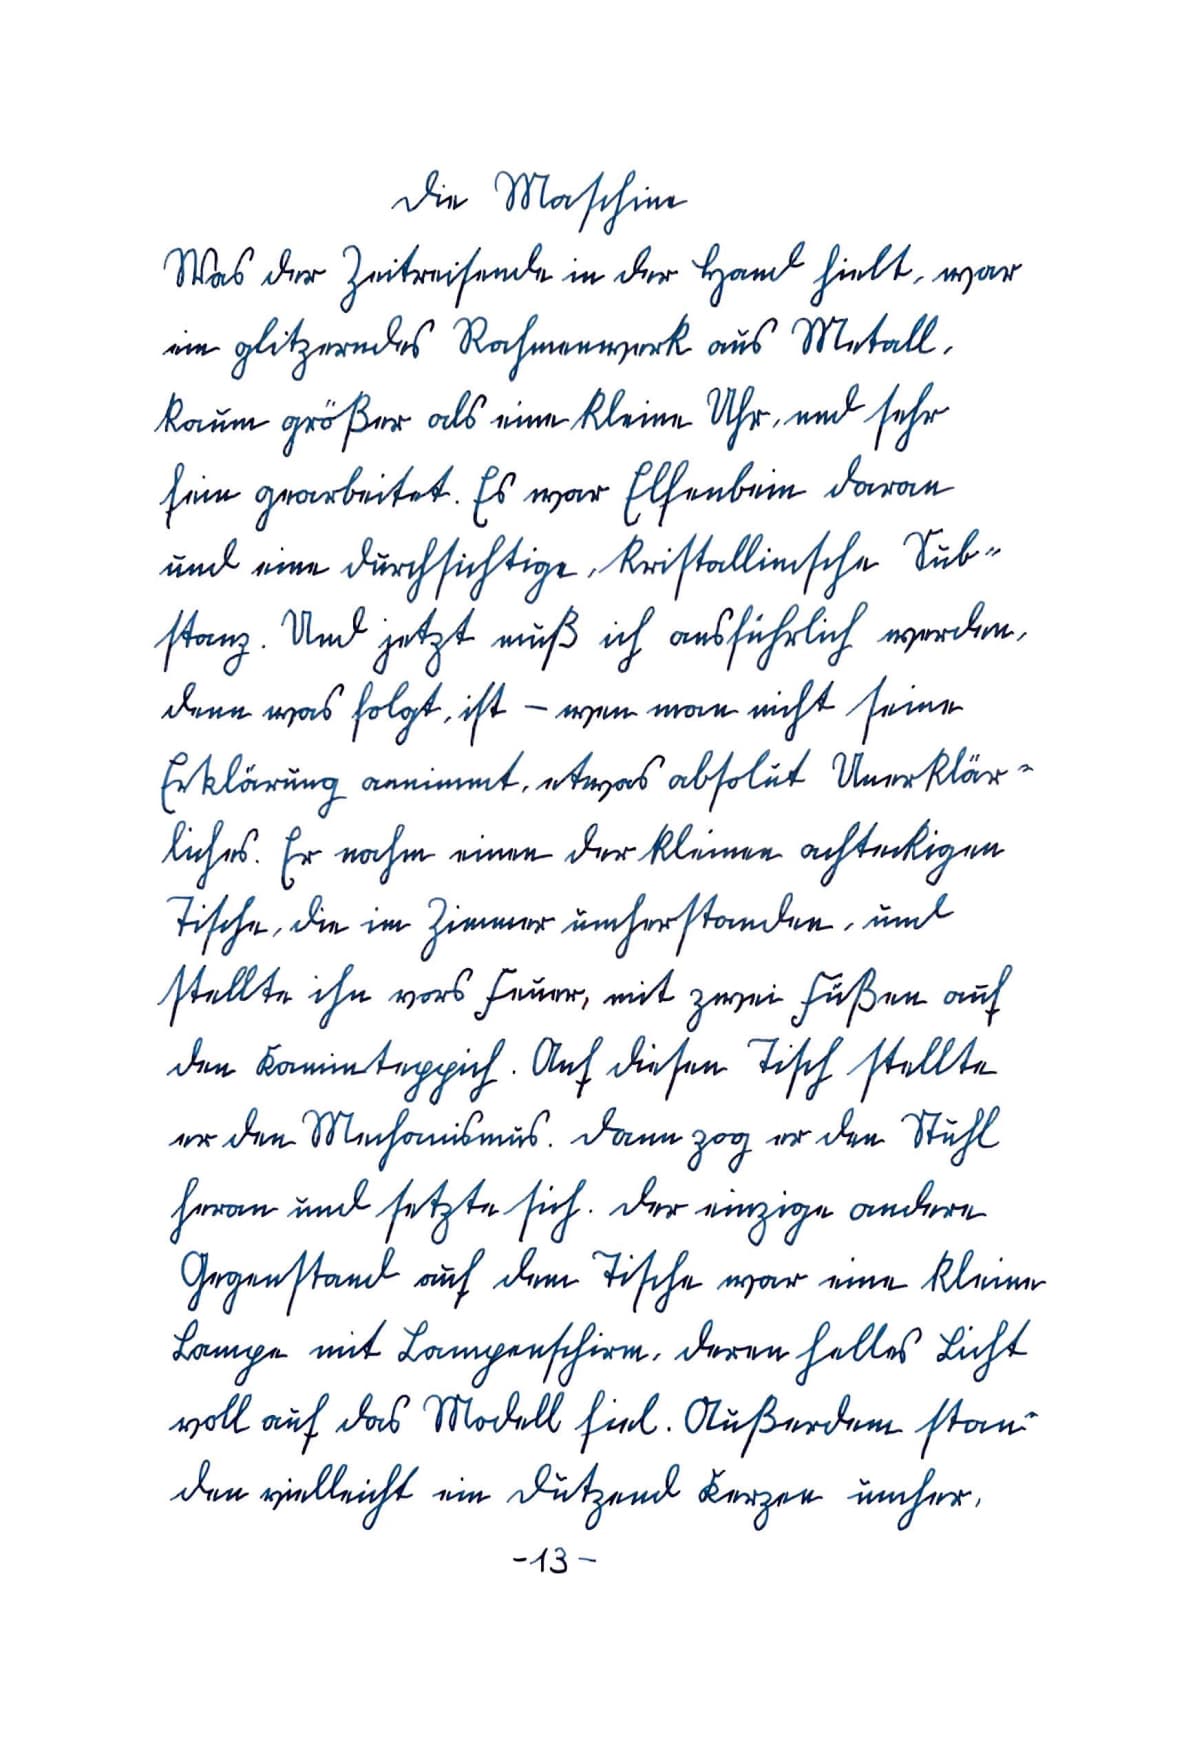 Die Maschine
Was der Zeitreisende in der Hand hielt, war
ein glitzerndes Rahmenwerk aus Metall,
kaum größer als eine kleine Uhr, und sehr
fein gearbeitet. Es war Elfenbein daran
und eine durchsichtige, kristallinische Sub-
stanz. Und jetzt muß ich ausführlich werden,
denn was folgt, ist – wen man nicht seine
Erklärung annimmt, etwas absolut Unerklär-
liches. Er nahm einen der kleinen achteckigen
Tische, die im Zimmer umherstanden, und
stellte ihn vors Feuer, mit zwei Füßen auf
den Kaminteppich. Auf diesen Tisch stellte
er den Mechanismus. Dann zog er den Stuhl
heran und setzte sich. Der einzige andere
Gegenstand auf dem Tische war eine kleine
Lampe mit Lampenschirm, deren helles Licht
voll auf das Modell fiel. Außerdem stan-
den vielleicht ein Dutzend Kerzen umher,
-13-